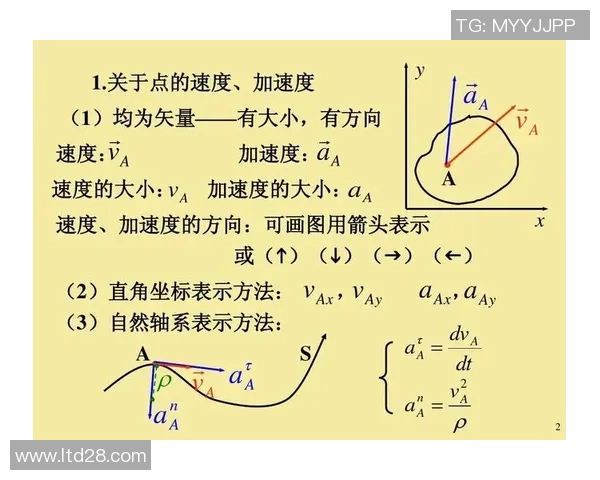 TG: MYYJJPP
1.关于点的速度、加速度
（1）均为矢量——有大小，有方向
速度：v⃗_A 加速度：a⃗_A
速度的大小：v_A 加速度的大小：a_A
速度、加速度的方向：可画图用箭头表示
或（↑）（↓）（→）（←）
y
a⃗_A
v⃗_A
A
x
（2）直角坐标表示方法： v_Ax，v_Ay a_Ax，a_Ay
（3）自然轴系表示方法：
A
S
ρ
v⃗_A
a_A^τ
a_A^n
a_A^τ = dv_A/dt
a_A^n = v_A^2/ρ
2
www.ltd28.com